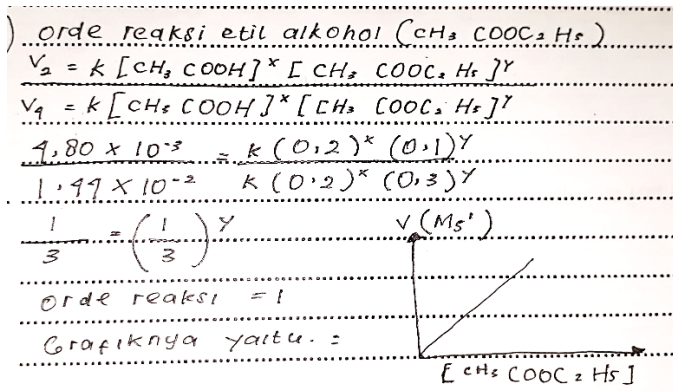 ) orde reaksi etil alkohol (CH₃ COOC₂ H₅)
V₂ = k [CH₃ COOH]ˣ [CH₃ COOC₂ H₅]ʸ
V₄ = k [CH₃ COOH]ˣ [CH₃ COOC₂ H₅]ʸ
4,80 × 10⁻³ = k (0,2)ˣ (0,1)ʸ
1,44 × 10⁻² k (0,2)ˣ (0,3)ʸ
1/3 = (1/3)ʸ
V (Ms')
orde reaksi = 1
Grafiknya yaitu. =
[CH₃ COOC₂ H₅]